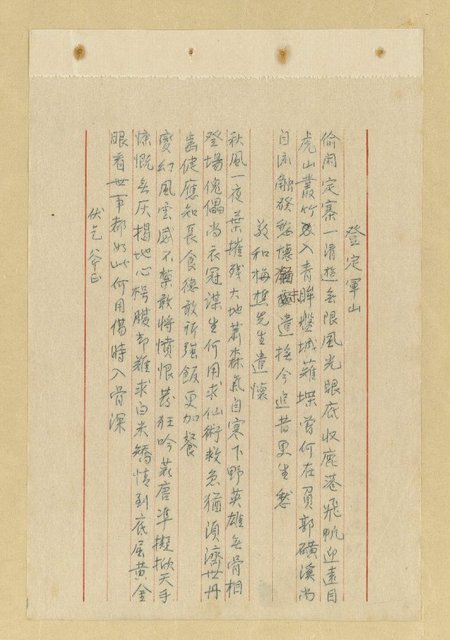 登定軍山
偷閑定寨一清遊無限風光眼底收鹿港飛帆迎遠目
虎山叢竹入青眸城雉堞曾何在負郭磺溪尚
自流觸撫今追昔更生愁
敬和梅樵先生遺懷
秋風一夜葉摧殘大地蕭森氣自寒下野英雄無骨相
登場傀儡尚衣冠謀生何用求仙術救急猶須濟世丹
老健應知長食德敢祈強飯更加餐
變幻風雲感不禁敢將憤恨寄狂吟裁唐準擬掀天手
慷慨無灰揭地心枵腹却難求白米矯情到底屈黃金
眼看世事都如此何用傷時入骨深
伏乞斧正